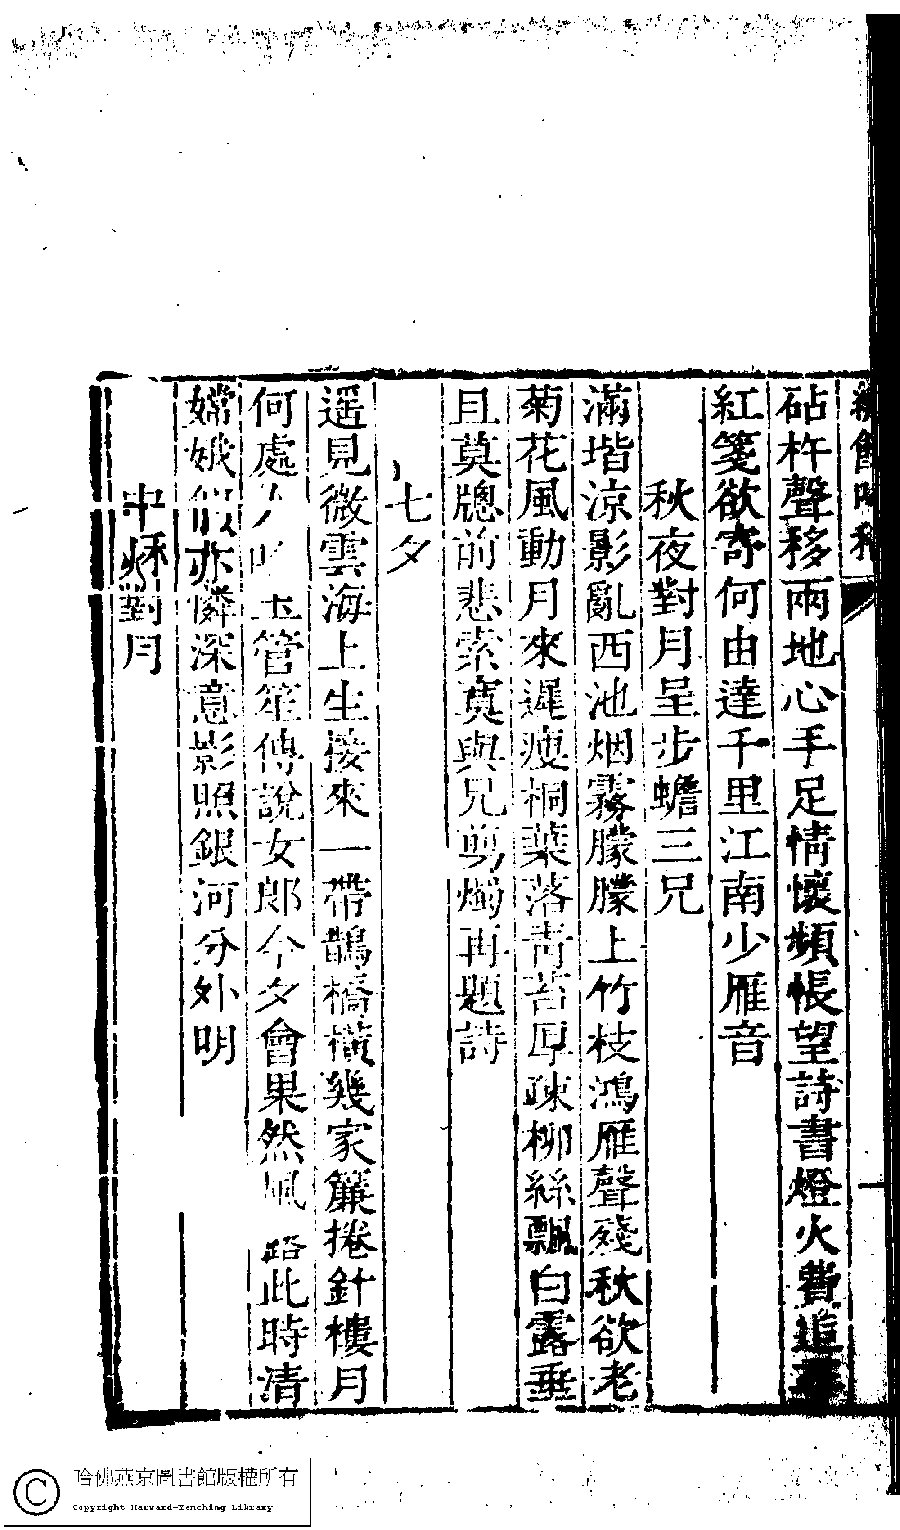 砧杵聲移兩地心手足情懷頻悵望詩書燈火費追
紅箋欲寄何由達千里江南少雁音
秋夜對月呈步蟾三兄
滿堦涼影亂西池烟霧朦朦上竹枝鴻雁聲殘秋欲老
菊花風動月來遲瘦桐葉落青苔厚疎柳絲飄白露垂
且莫牕前悲索寞與兄剪燭再題詩
七夕
遥見微雲海上生接來一帶鵲橋橫幾家簾捲針樓月
何處人吹玉管笙傳說女郎今夕會果然風露此時清
嫦娥似亦憐深意影照銀河分外明
中秋對月
哈佛燕京圖書館版權所有
Copyright Harvard-Yenching Library